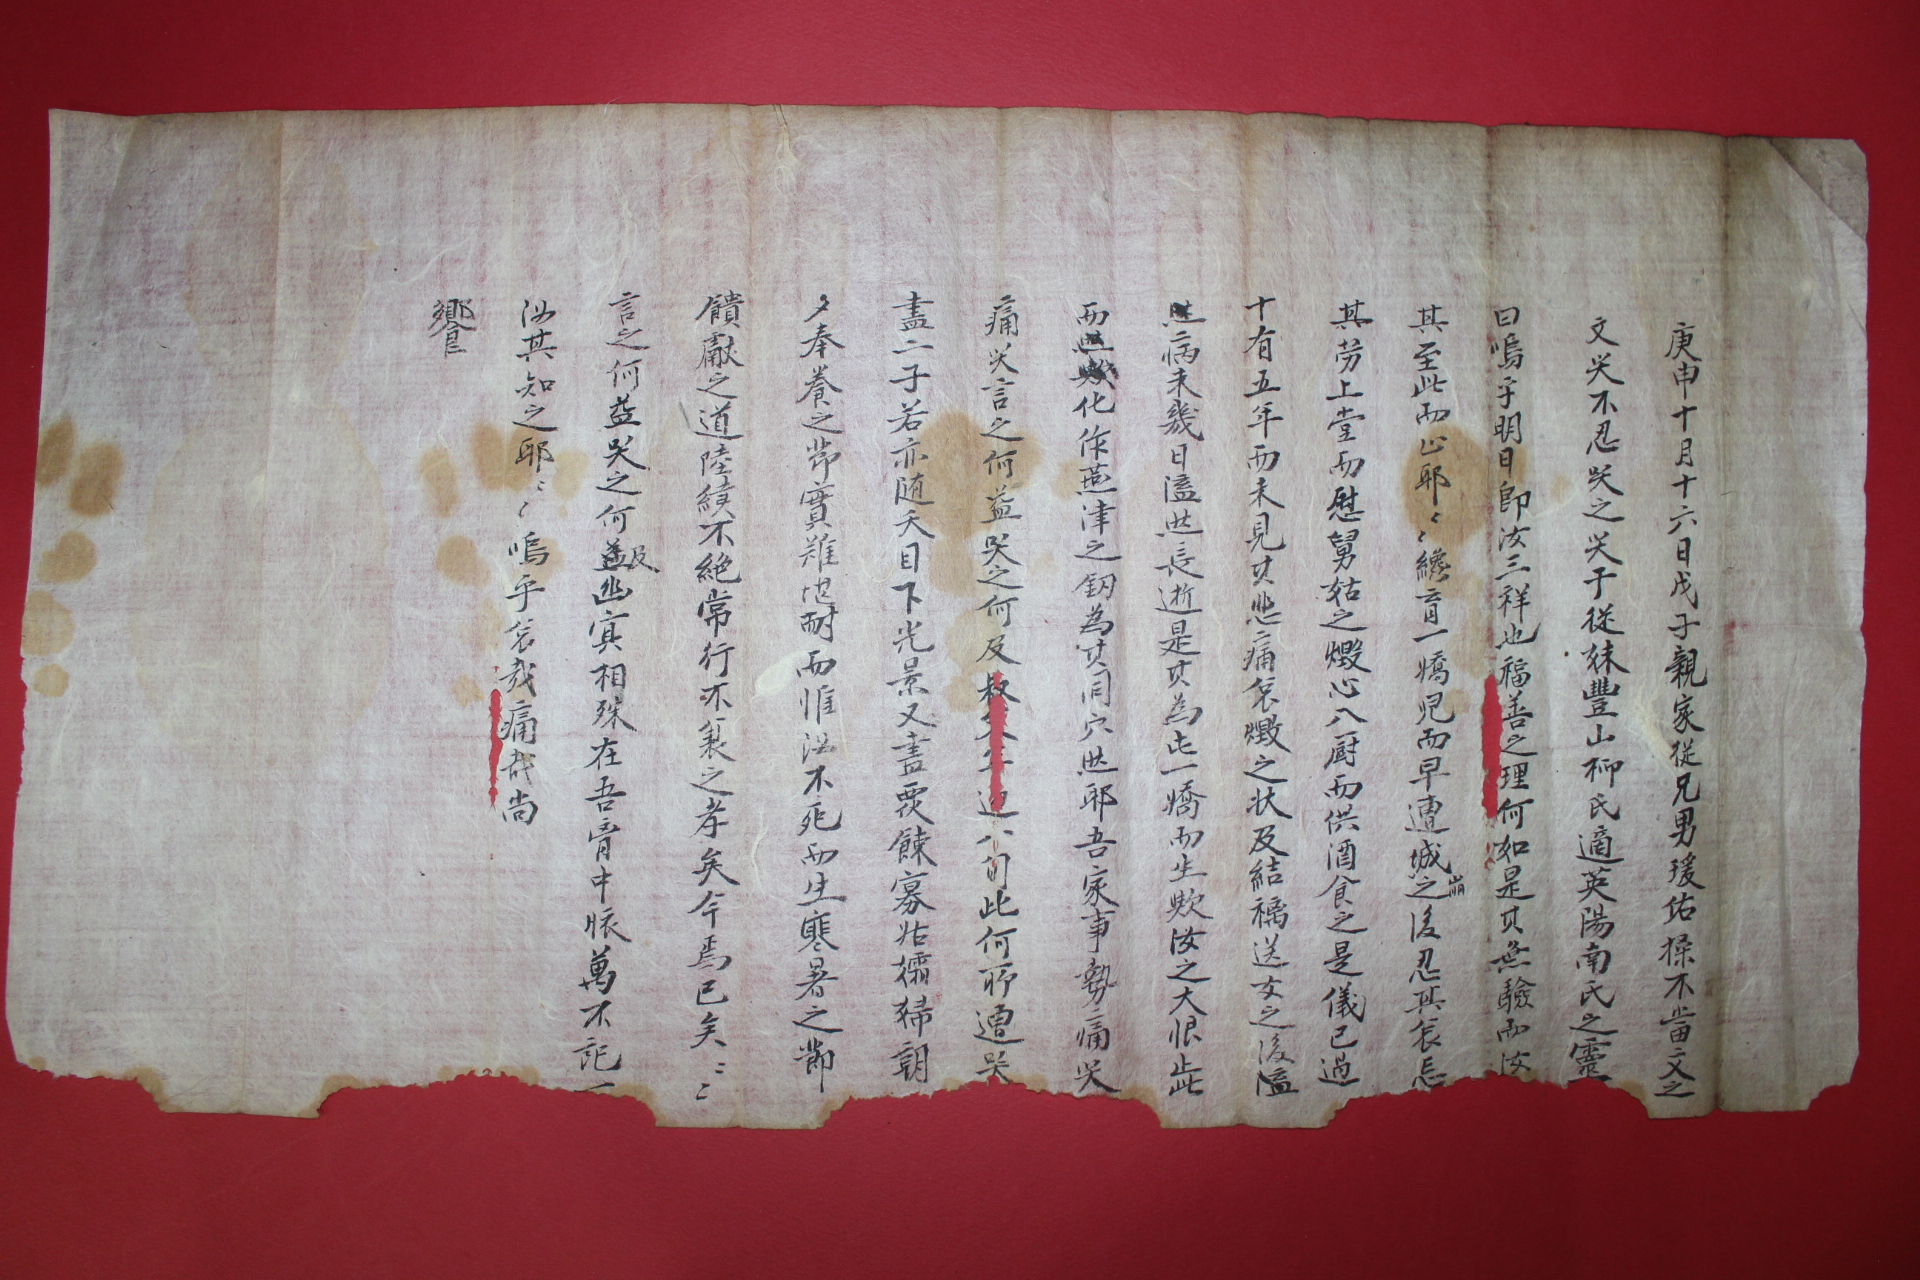 庚申十月十六日戊子親家從兄男瑗佑操不當文之
文哭不忍哭之哭于從妹豐山柳氏適英陽南氏之靈
曰嗚乎明日卽汝三祥也福善之理何如是其無驗而汝
其至此而止耶〻〻纔育一嬌兒而早遭城崩之後忍其哀忘
其劳上堂而慰舅姑之燬心入厨而供酒食之是儀已過
十有五年而未見其悲痛哀燬之状及結褵送女之後溘
然病未幾日溘然長逝是其為此一嬌而生歟汝之大恨此
而然歟化作燕津之釼為其同穴然耶吾家事勢痛哭
痛哭言之何益哭之何及叔父年迫八旬此何所遭哭
盡二子若亦随夭目下光景又盡覆餗寡姑孀婦朝
夕奉養之節實難堪耐而惟汝不死而生寒暑之節
饋獻之道陸續不絶常行不製之孝矣今焉已矣〻〻
言之何益哭之何及幽冥相殊在吾膏中脹萬不記一
汝其知之耶〻〻嗚乎哀哉痛哉尚
饗